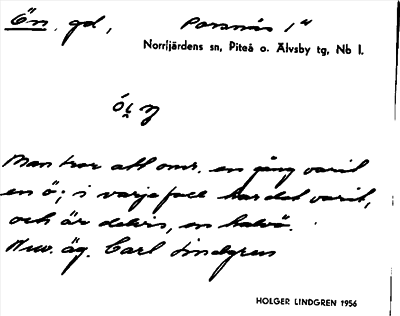 Ön, gd, Porsnäs 1"
Norrfjärdens sn, Piteå o. Älvsby tg, Nb l.
Man tror att omr. en gång varit
en ö; i varje fall har det varit,
och är delvis, en halvö.
Nuv. äg. Carl Lindgren
HOLGER LINDGREN 1956